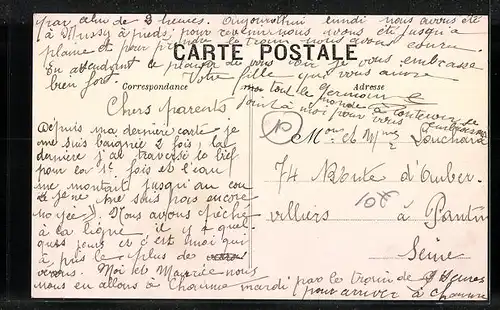 par clm de 3 heures. Aujourd'hui lundi nous avons été
à Mussy à pieds, pour revenir nous avons été jusqu'à
plaine et pour prendre le train nous avons couru.
En attendant le plaisir de vous voir je vous embrasse
bien fort. Votre fille qui vous aime
CARTE POSTALE
Correspondance
Adresse
moi tout le monde
Germaine
Chers parents
Depuis ma dernière carte je
me suis baignée 2 fois, la
dernière j'ai traversé le bief
pour la 1e fois et l'eau
me montait jusqu'au cou
(je ne me suis pas encore
noyée). Nous avons pêché
à la ligne il y a quel-
ques jours et c'est moi qui
a pris le plus de
verons. Moi et Maurice nous
nous en allons à Chaume mardi par le train de 8 heures
pour arriver à Chaume
P
Mon et Mme
Souchard
74 Route d'Auber-
villiers à Pantin
Seine
10f